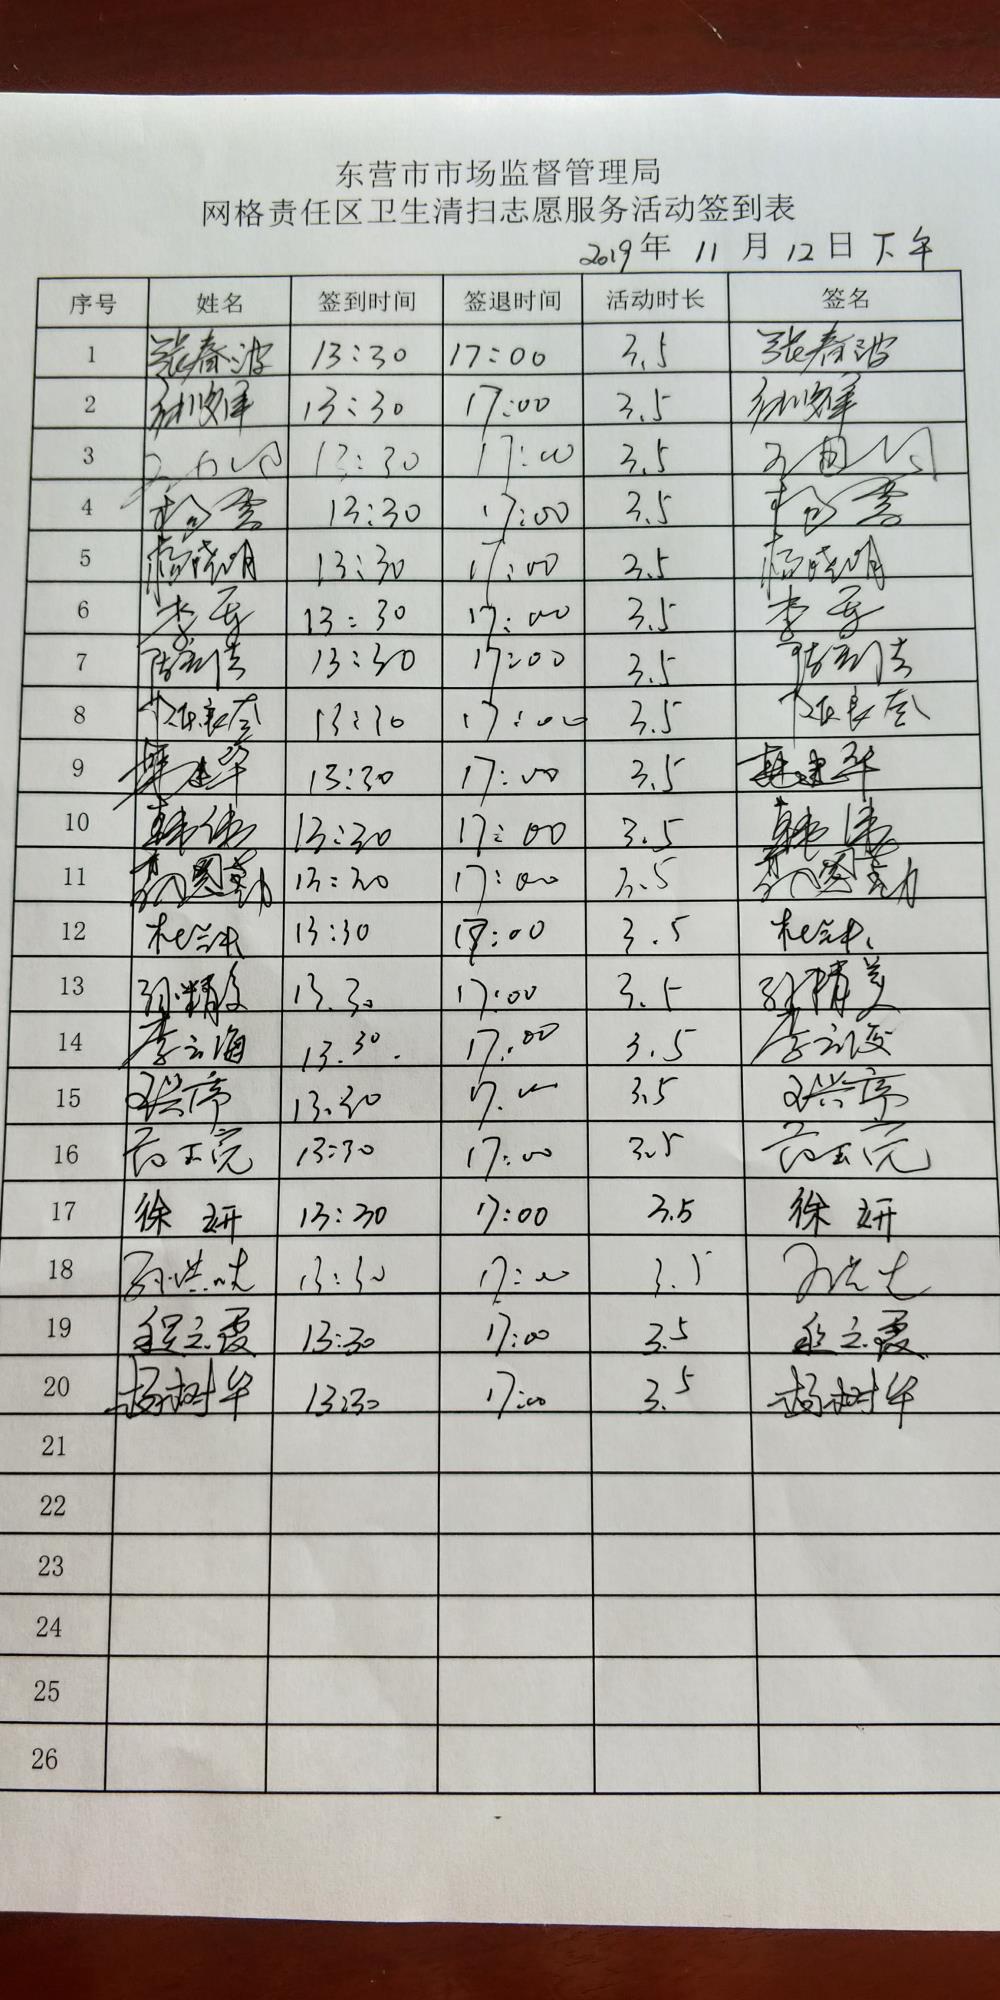 东营市市场监督管理局
网格责任区卫生清扫志愿服务活动签到表
2019年 11 月 12 日 下午
序号 姓名 签到时间 签退时间 活动时长 签名
1 张春波 13:30 17:00 3.5 张春波
2 13:30 17:00 3.5
3 13:30 17:00 3.5
4 杨雲 13:30 17:00 3.5 杨雲
5 杨晓明 13:30 17:00 3.5 杨晓明
6 李 13:30 17:00 3.5 李
7 13:30 17:00 3.5
8 13:30 17:00 3.5
9 建华 13:30 17:00 3.5 建华
10 韩伟 13:30 17:00 3.5 韩伟
11 13:30 17:00 3.5
12 13:30 17:00 3.5
13 孙精美 13.30 17:00 3.5 孙精美
14 李云海 13.30. 17.00 3.5 李云海
15 王洪亭 13.30 17.00 3.5 王洪亭
16 13:30 17:00 3.5
17 徐妍 13:30 17:00 3.5 徐妍
18 13:30 17:00 3.5
19 程立霞 13:30 17:00 3.5 程立霞
20 杨树华 13:30 17:00 3.5 杨树华
21
22
23
24
25
26